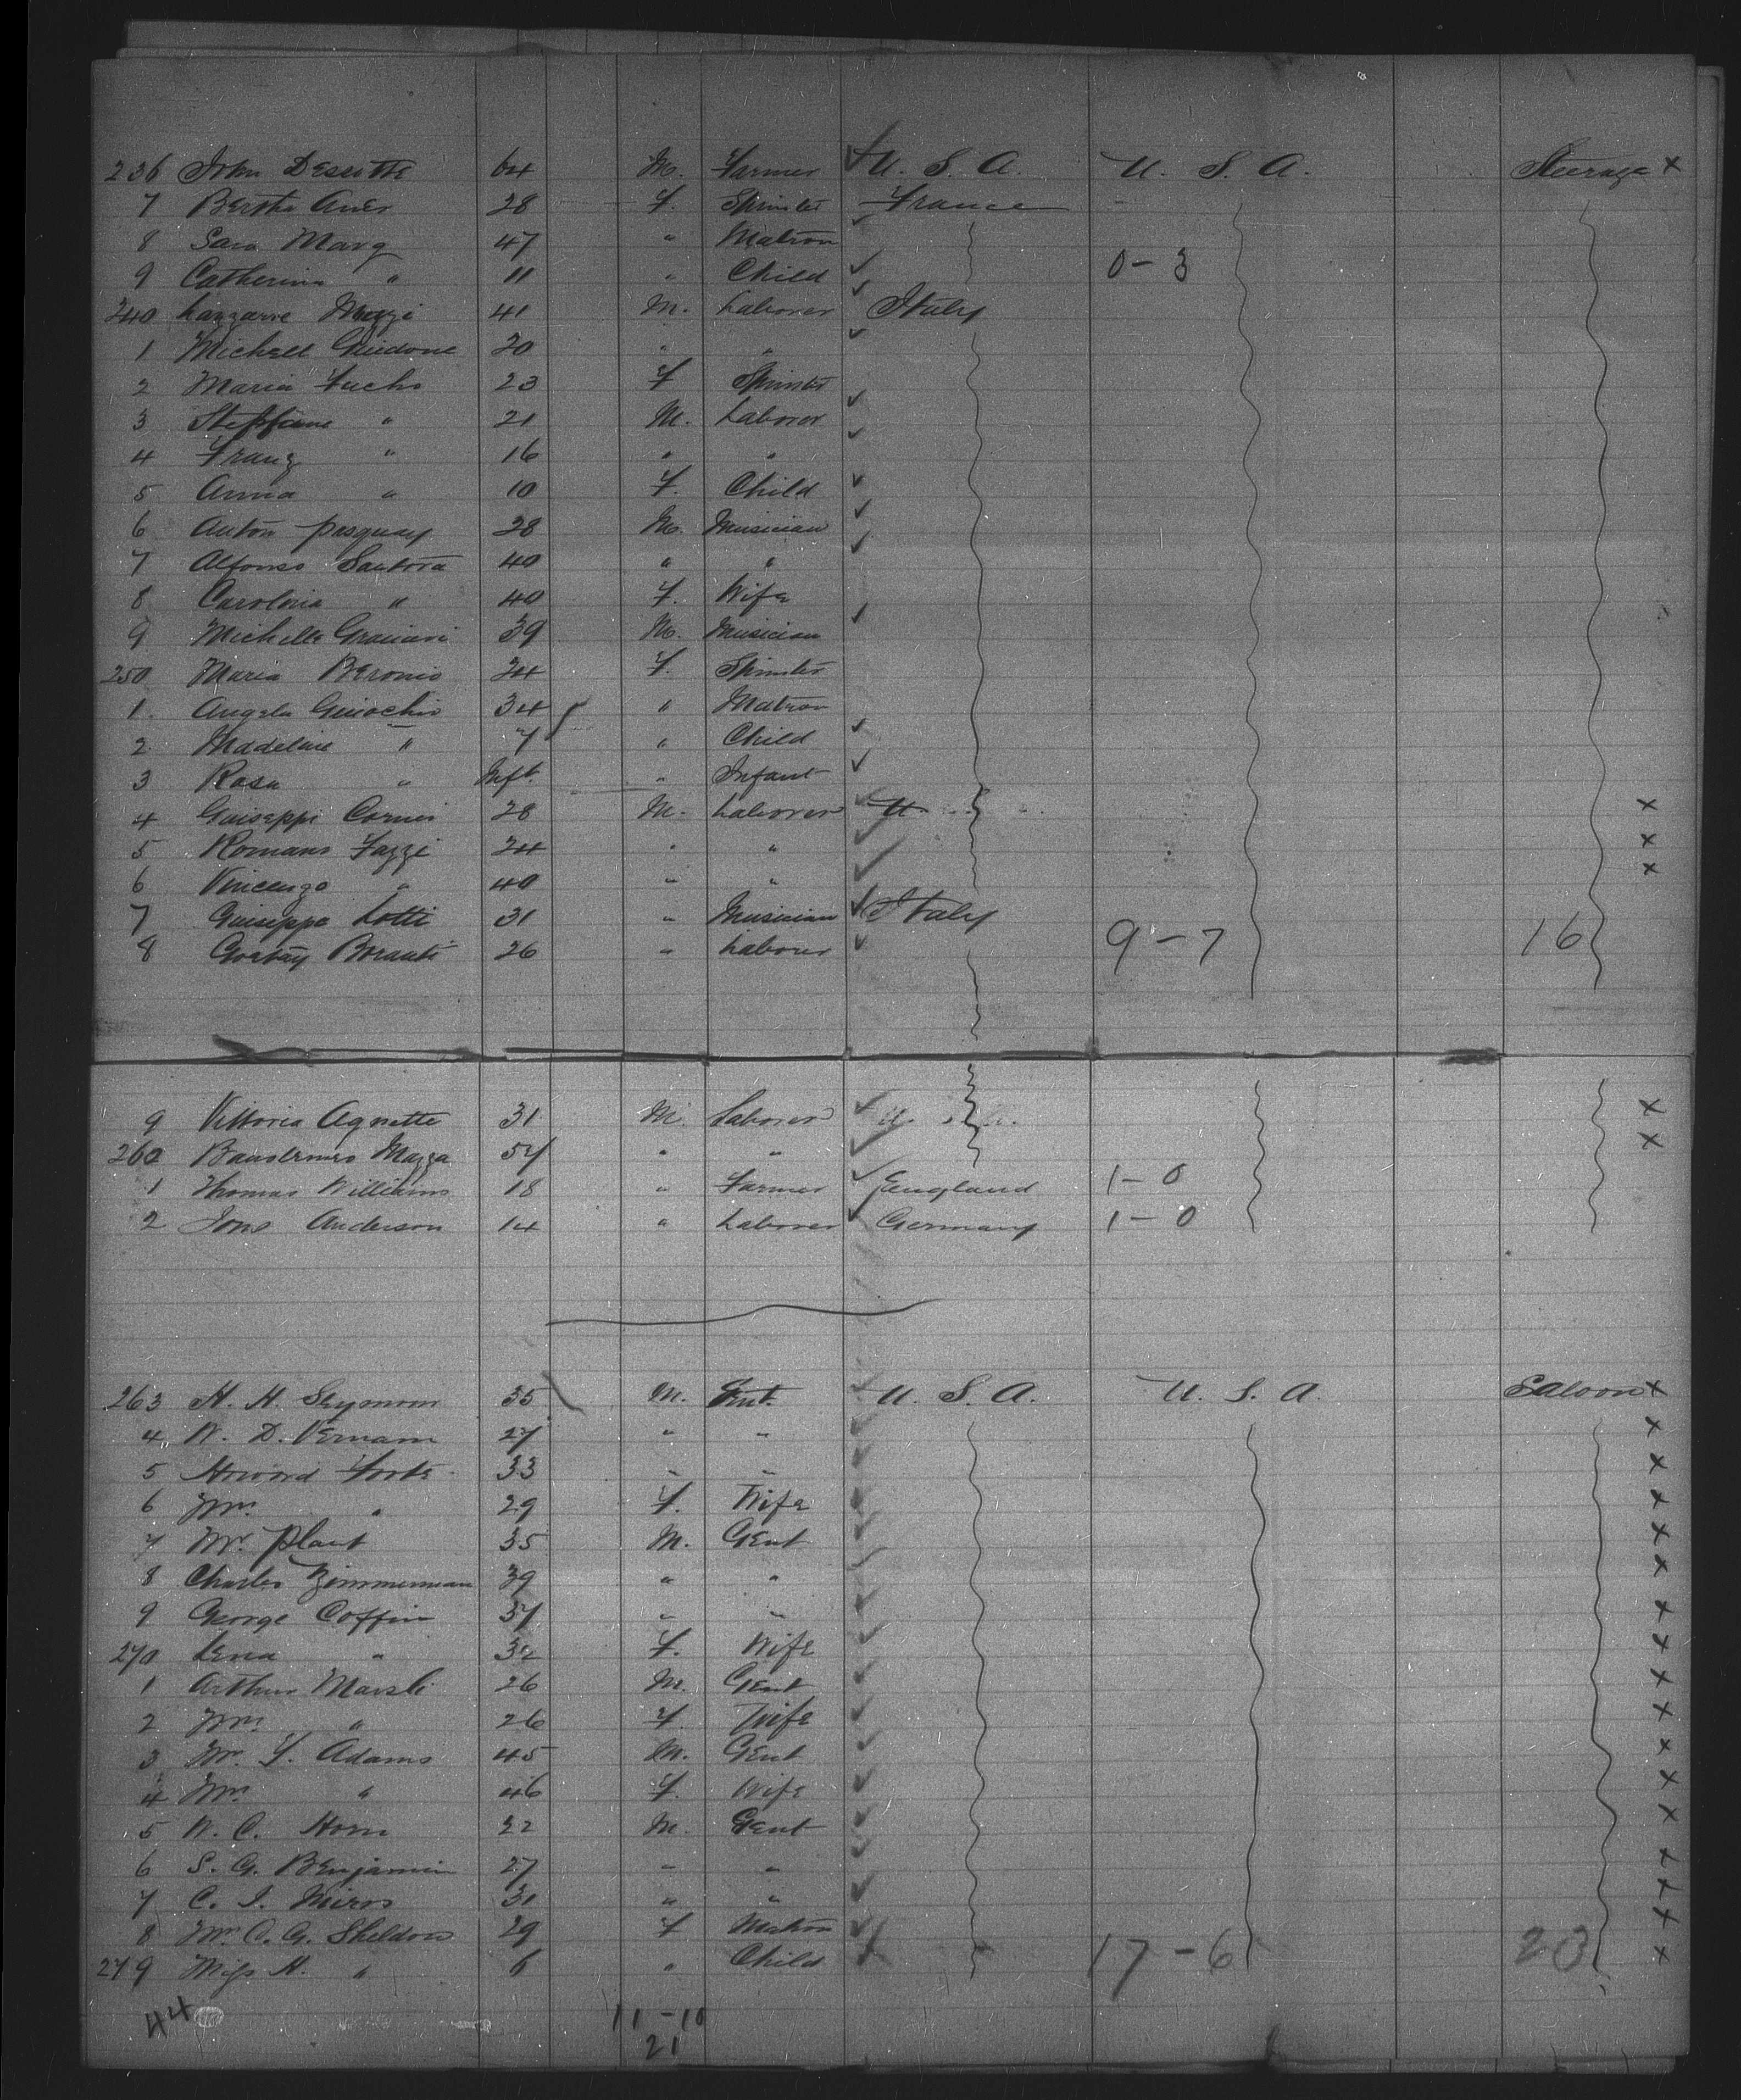 236 John Dessotte 64 M. Farmer U. S. A. U. S. A. Steerage x
7 Bertha Auer 28 F. Spinster France
8 Sara Marg 47 " Matron
9 Catherina " 11 " Child 0-3
240 Lazzarre Mezzi 41 M. Laborer Italy
1 Michell Guidone 20 " "
2 Maria Fuchs 23 F Spinster
3 Steffane " 21 M. Laborer
4 Franz " 16 " "
5 Anna " 10 F. Child
6 Anton Pasquay 28 M. Musician
7 Alfonso Santora 40 " "
8 Carolina " 40 F. Wife
9 Michelle Graciani 39 M. Musician
250 Maria Beronio 24 F. Spinster
1. Angela Guiochio 34 " Matron
2 Madeline " 7 " Child
3 Rosa " Inft. " Infant
4 Guiseppi Cornei 28 M. Laborer U. x
5 Romano Fazzi 24 " " x
6 Vincenzo " 40 " " x
7 Guiseppe Lotti 31 " Musician Italy
8 Boranti 26 " Laborer 9-7 16
9 Vittoria Agnette 31 M. Laborer x
260 Mazza 54 " " x
1 Thomas Williams 18 " Farmer England 1-0
2 Jons Anderson 14 " Laborer Germany 1-0
263 H. H. Seymour 35 M. Gent. U. S. A. U. S. A. Saloon x
4 W. D. Vernam 27 " " x
5 Howard Forte 33 " " x
6 Mrs. " 29 F. Wife x
7 Mr. Plant 35 M. Gent x
8 Charles Zimmerman 39 " " x
9 George Coffin 37 " " x
270 Lena " 32 F. Wife x
1 Arthur Marsh 26 M. Gent x
2 Mrs " 26 F. Wife x
3 Mr. F. Adams 45 M. Gent x
4 Mrs. " 46 F. Wife x
5 W. C. Horn 22 M. Gent x
6 S. G. Benjamin 27 " " x
7 C. I. 31 " " x
8 Mrs. C. G. Sheldon 29 F Matron x
279 Miss H. " 6 " Child 17-6 23 x
44 11-10
21